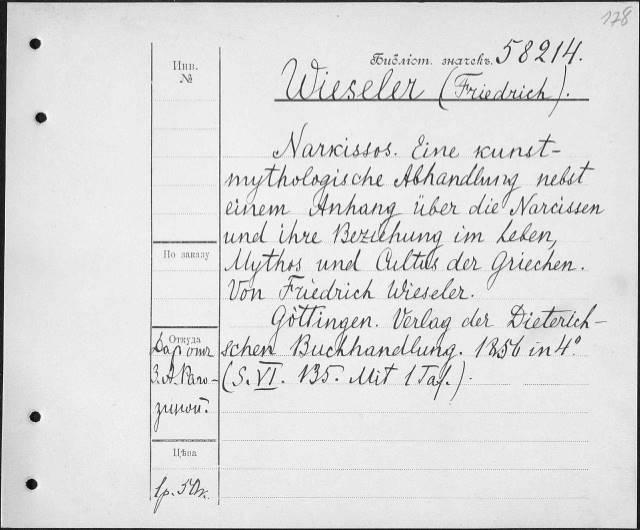 178
Инв.
№
Библіот. значекъ. 58214.
Wieseler (Friedrich).
Narkissos. Eine kunst-
mythologische Abhandlung nebst
einem Anhang über die Narcissen
und ihre Beziehung im Leben,
Mythos und Cultus der Griechen.
Von Friedrich Wieseler.
Göttingen. Verlag der Dieterich-
schen Buchhandlung. 1856 in 4°
(S. VI. 135. Mit 1 Taf.).
По заказу
Откуда
Даръ отъ
З. А. Раго-
зиной.
Цѣна
1р. 50к.